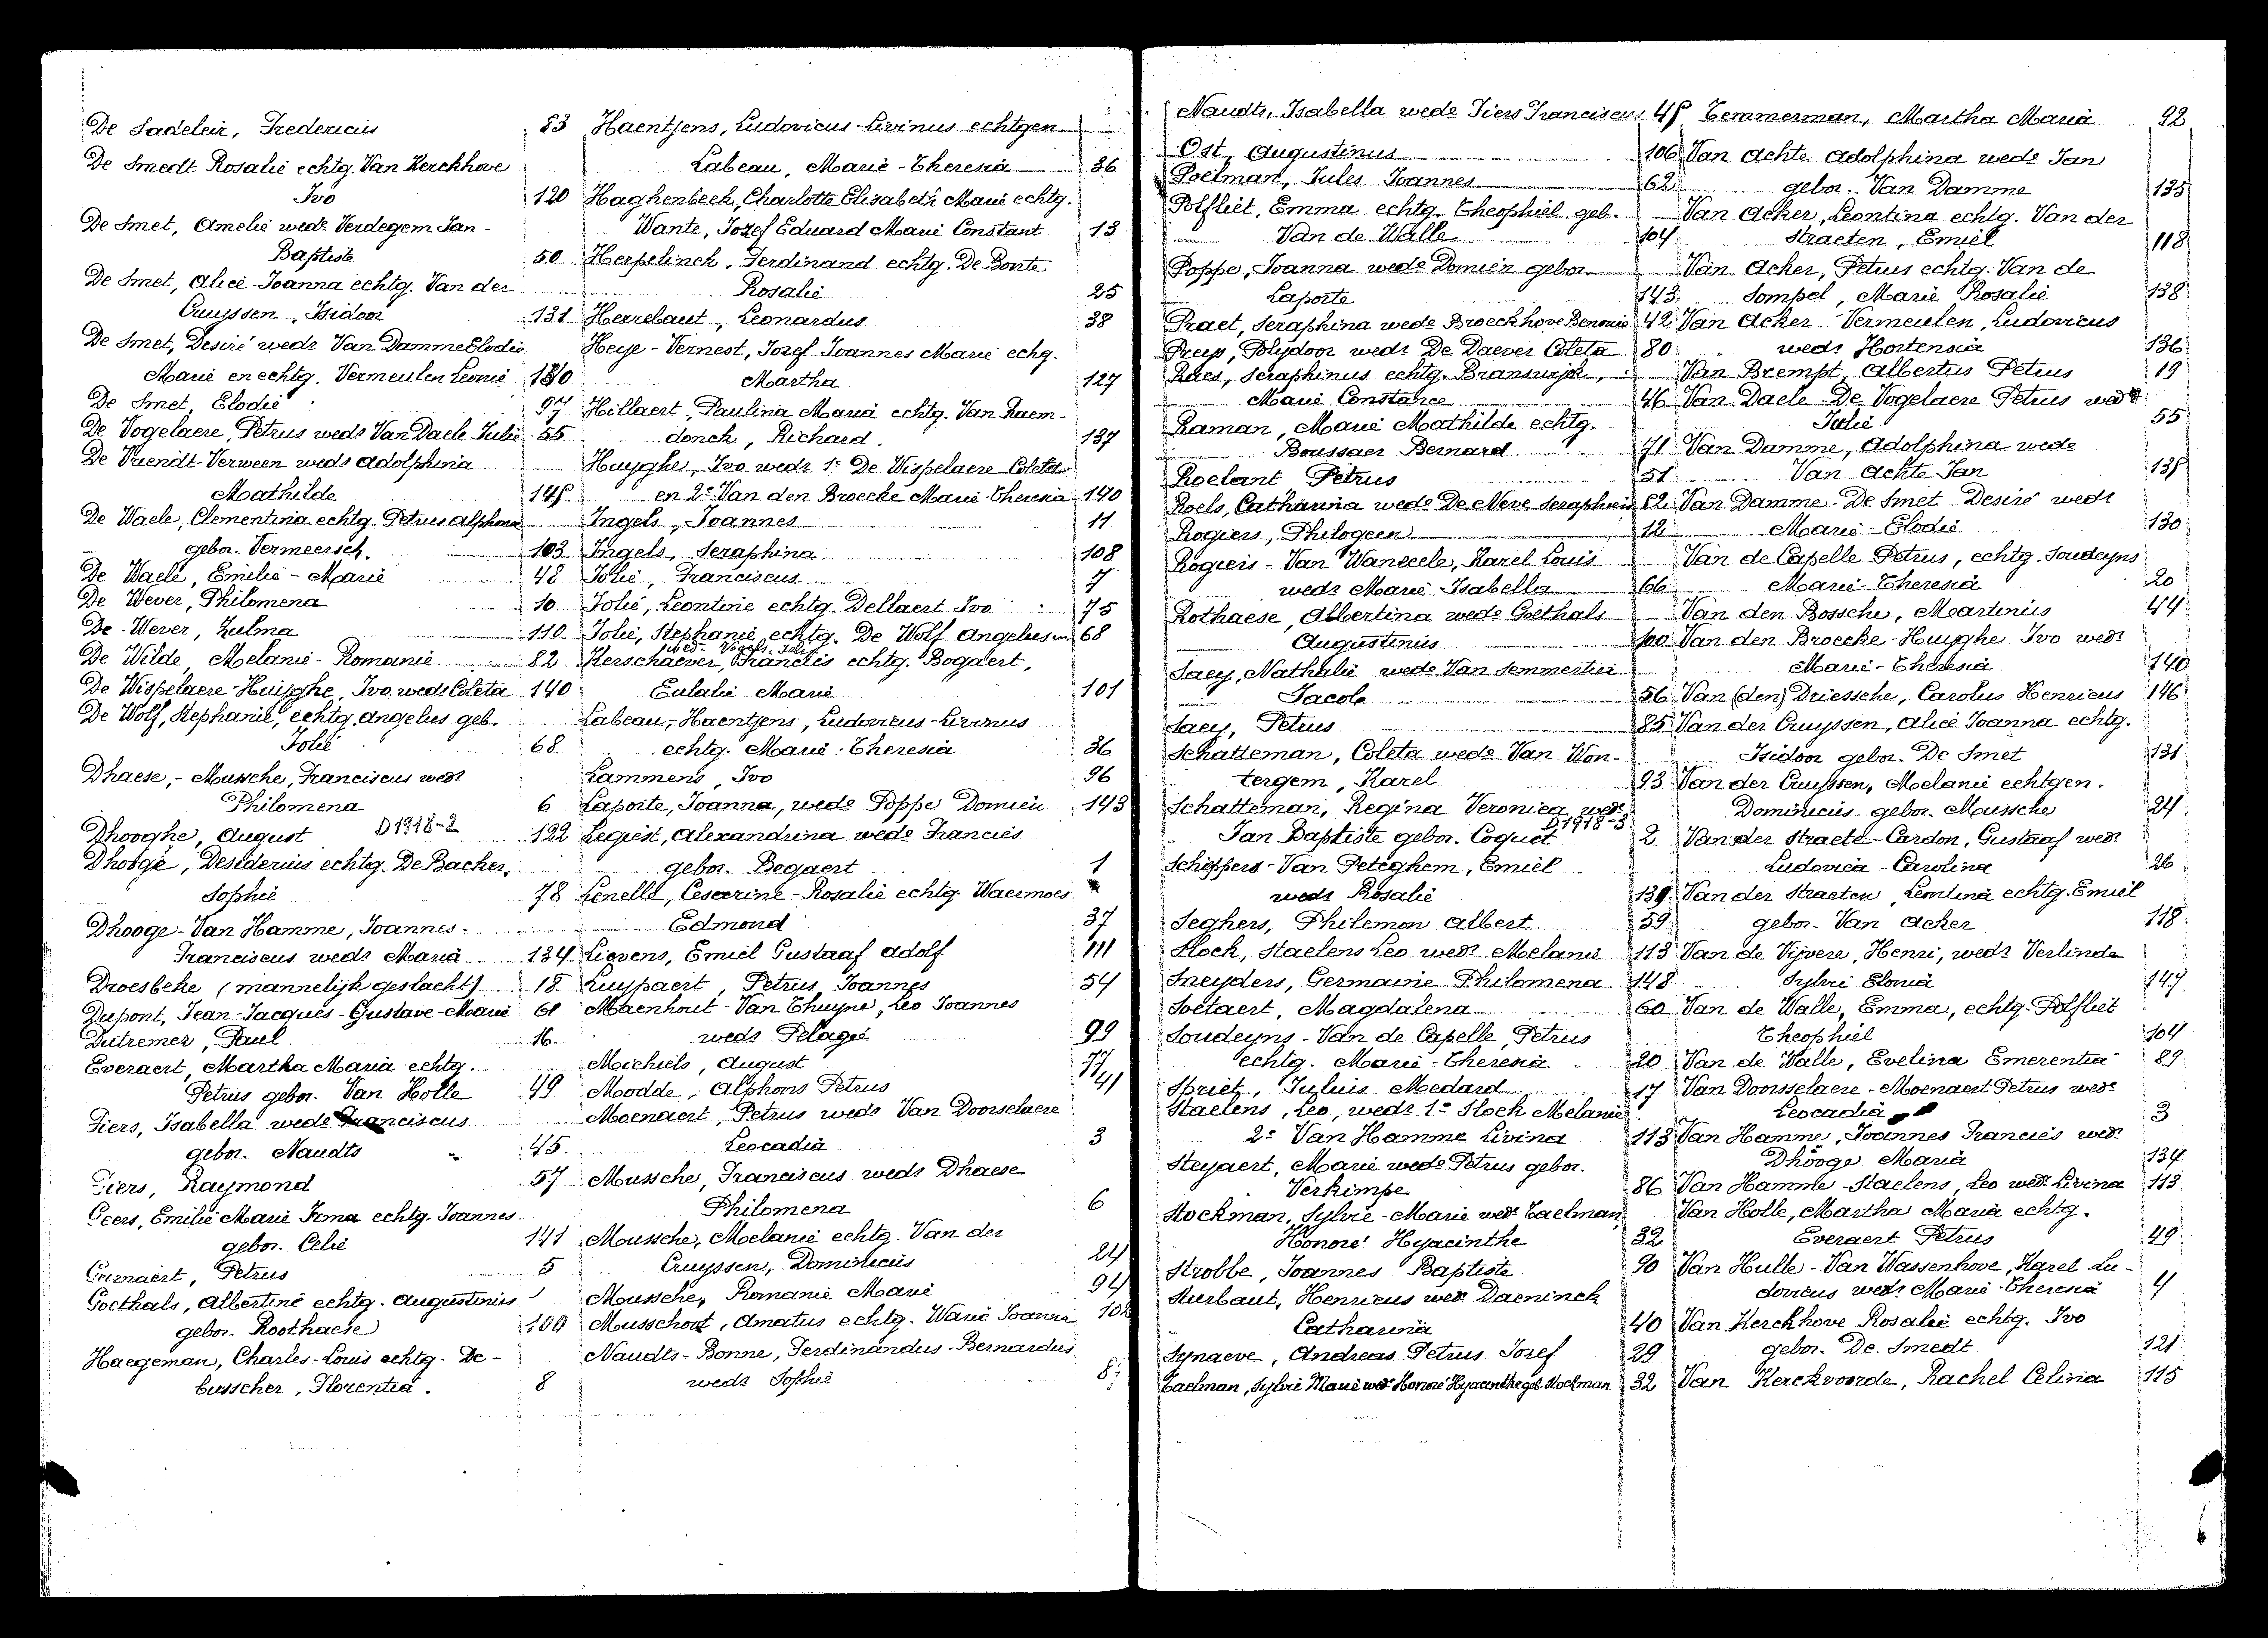 De Sadeleir, Fredericus 83
De Smedt Rosalie echtg. Van Kerckhove
Ivo 120
De Smet, Amelie wede Verdegem Jan-
Baptiste 50
De Smet, Alice-Joanna echtg. Van der
Cruyssen, Isidoor 131
De Smet, Desiré wedr Van Damme Elodie
Marie en echtg. Vermeulen Leonie 130
De Smet, Elodie 97
De Vogelaere, Petrus wedr Van Daele Julie 55
De Vriendt-Verween wedr Adolphina
Mathilde 145
De Waele, Clementina echtg. Petrus Alphons
gebor. Vermeersch. 103
De Waele, Emilie-Marie 48
De Wever, Philomena 10
De Wever, Zulma 110
De Wilde, Melanie-Romanie 82
De Wispelaere-Huijghe, Ivo wedr Coleta 140
De Wolf, Stephanie, echtg. Angelus geb.
Jolie 68
Dhaese,-Mussche, Franciscus wedr
Philomena 6
Dhooghe, August D 1918-2 122
Dhooge, Desiderius echtg. De Backer,
Sophie 78
Dhooge-Van Hamme, Joannes-
Franciscus wedr Maria 134
Droesbeke (mannelijk geslacht) 18
Dupont, Jean-Jacques-Gustave-Marie 61
Dutremer, Paul 16
Everaert, Martha Maria echtg.
Petrus gebor. Van Holle 49
Fiers, Isabella wede Franciscus
gebor. Naudts 45
Fiers, Raymond 57
Geers, Emilie Marie Irma echtg. Joannes
gebor. Celie 141
Petrus 5
Goethals, Albertine echtg. Augustinus
gebor. Roothaese 100
Haegeman, Charles-Louis echtg. De-
busscher, Florentia. 8
Haentjens, Ludovicus-Livinus echtgen
Labeau, Marie-Theresia 36
Haghenbeek, Charlotte Elisabeth Marie echtg.
Wante, Jozef Eduard Marie Constant 13
Herpelinck, Ferdinand echtg. De Bonte
Rosalie 25
Herrebaut, Leonardus 38
Heye-Vernest, Jozef Joannes Marie echg.
Martha 127
Hillaert, Paulina Maria echtg. Van Raem-
donck, Richard. 137
Huyghe, Ivo wedr 1e De Wispelaere Coleta
en 2e Van den Broecke Marie Theresia 140
Ingels, Joannes 11
Ingels, Seraphina 108
Jolie, Franciscus 7
Jolie, Leontine echtg. Dellaert Ivo 75
Jolie, Stephanie echtg. De Wolf Angelus 68
Kerschaever, Francies echtg. Bogaert,
Eulalie Marie 101
Labeau,-Haentjens, Ludovicus-Livinus
echtg. Marie-Theresia 36
Lammens, Ivo 96
Laporte, Joanna, wede Poppe Domien 143
Legiest, Alexandrina wede Francies
gebor. Bogaert 1
Lenelle, Cesarine-Rosalie echtg. Waermoes
Edmond 37
Lievens, Emiel Gustaaf Adolf 111
Luypaert, Petrus Joannes 54
Maenhout-Van Thuyne, Leo Joannes
wedr Pelagie 99
Michiels, August 77
Modde, Alphons Petrus 41
Moenaert, Petrus wedr Van Doorselaere
Leocadia 3
Mussche, Franciscus wedr Dhaese
Philomena 6
Mussche, Melanie echtg. Van der
Cruyssen, Dominicus 24
Mussche, Romanie Marie 94
Musschoot, Amatus echtg. Warie Joanna
Naudts-Bonne, Ferdinandus-Bernardus
wedr Sophie
Naudts, Isabella wede Fiers Franciscus 45
Ost, Augustinus 106
Poelman, Jules Joannes 62
Polfliet, Emma echtg. Theophiel geb.
Van de Walle 104
Poppe, Joanna wede Domien gebor.
Laporte 143
Praet, Seraphina wede Broeckhove Benonie 42
Preys, Polydoor wedr De Daever Coleta 80
Raes, Seraphinus echtg. Branswijk,
Marie Constance 46
Raman, Marie Mathilde echtg.
Boussaer Bernard 71
Roelant Petrus 51
Roels, Catharina wede De Neve Seraphien 52
Rogiers, Philogeen 12
Rogiers-Van Wanseele, Karel Louis
wedr Marie Isabella 66
Rothaese, Albertina wede Goethals
Augustinus 100
Saey, Nathalie wede Van Semmertier
Jacob 56
Saey, Petrus 85
Schatteman, Coleta wede Van Won-
tergem, Karel 93
Schatteman, Regina Veronica wede
D 1918-3
Jan Baptiste gebor. Coquet 2
Scheppers-Van Peteghem, Emiel
wedr Rosalie 139
Seghers, Philemon Albert 59
Slock, Staelens Leo wedr Melanie 113
Sneyders, Germaine Philomena 148
Soetaert, Magdalena 60
Soudeyns-Van de Capelle, Petrus
echtg. Marie-Theresia 20
Spriet, Juluis Medard 17
Staelens, Leo, wedr 1e Slock Melanie
2e Van Hamme Livina 113
Steyaert, Marie wede Petrus gebor.
Verkimpe 86
Stockman, Sylvie-Marie wede Taelman,
Honoré Hyacinthe 32
Strobbe, Joannes Baptiste 90
Sturbaut, Henricus wedr Daeninck
Catharina 40
Synaeve, Andreas Petrus Jozef 29
Taelman, Sylvie Marie wede Honoré Hyacinthe geb. Stockman 32
Temmerman, Martha Maria 92
Van Achte Adolphina wede Jan
gebor. Van Damme 135
Van Acker, Leontina echtg. Van der
Straeten, Emiel 118
Van Acker, Petrus echtg. Van de
Sompel, Marie Rosalie 138
Van Acker Vermeulen, Ludovicus
wedr Hortensia 136
Van Brempt, Albertus Petrus 19
Van Daele-De Vogelaere Petrus wedr
Julie 55
Van Damme, Adolphina wede
Van Achte Jan 135
Van Damme-De Smet Desiré wedr
Marie-Elodie 130
Van de Capelle Petrus, echtg. Soudeyns
Marie-Theresia 20
Van den Bossche, Martinius 44
Van den Broecke-Huyghe Ivo wedr
Marie-Theresia 140
Van (den) Driessche, Carolus Henricus 146
Van der Cruyssen, Alice Joanna echtg.
Isidoor gebor. De Smet 131
Van der Cruyssen, Melanie echtgen.
Dominicus gebor. Mussche 24
Van der Straete-Cardon, Gustaaf wedr
Ludovica-Carolina 26
Van der Straeten, Leontina echtg. Emiel
gebor. Van Acker 118
Van de Vijvere, Henri, wedr Verlinde
Sylvie Elonia 147
Van de Walle, Emma, echtg. Polfliet
Theophiel 104
Van de Walle, Evelina Emerentia 89
Van Doorsselaere-Moenaert Petrus wedr
Leocadia 3
Van Hamme, Joannes Francies wedr
Dhooge Maria 134
Van Hamme-Staelens, Leo wedr Livina 113
Van Holle, Martha Maria echtg.
Everaert Petrus 49
Van Hulle-Van Wassenhove, Karel Lu-
dovicus wedr Marie-Theresia 4
Van Kerckhove Rosalie echtg. Ivo
gebor. De Smedt 121
Van Kerckvoorde, Rachel Celina 115